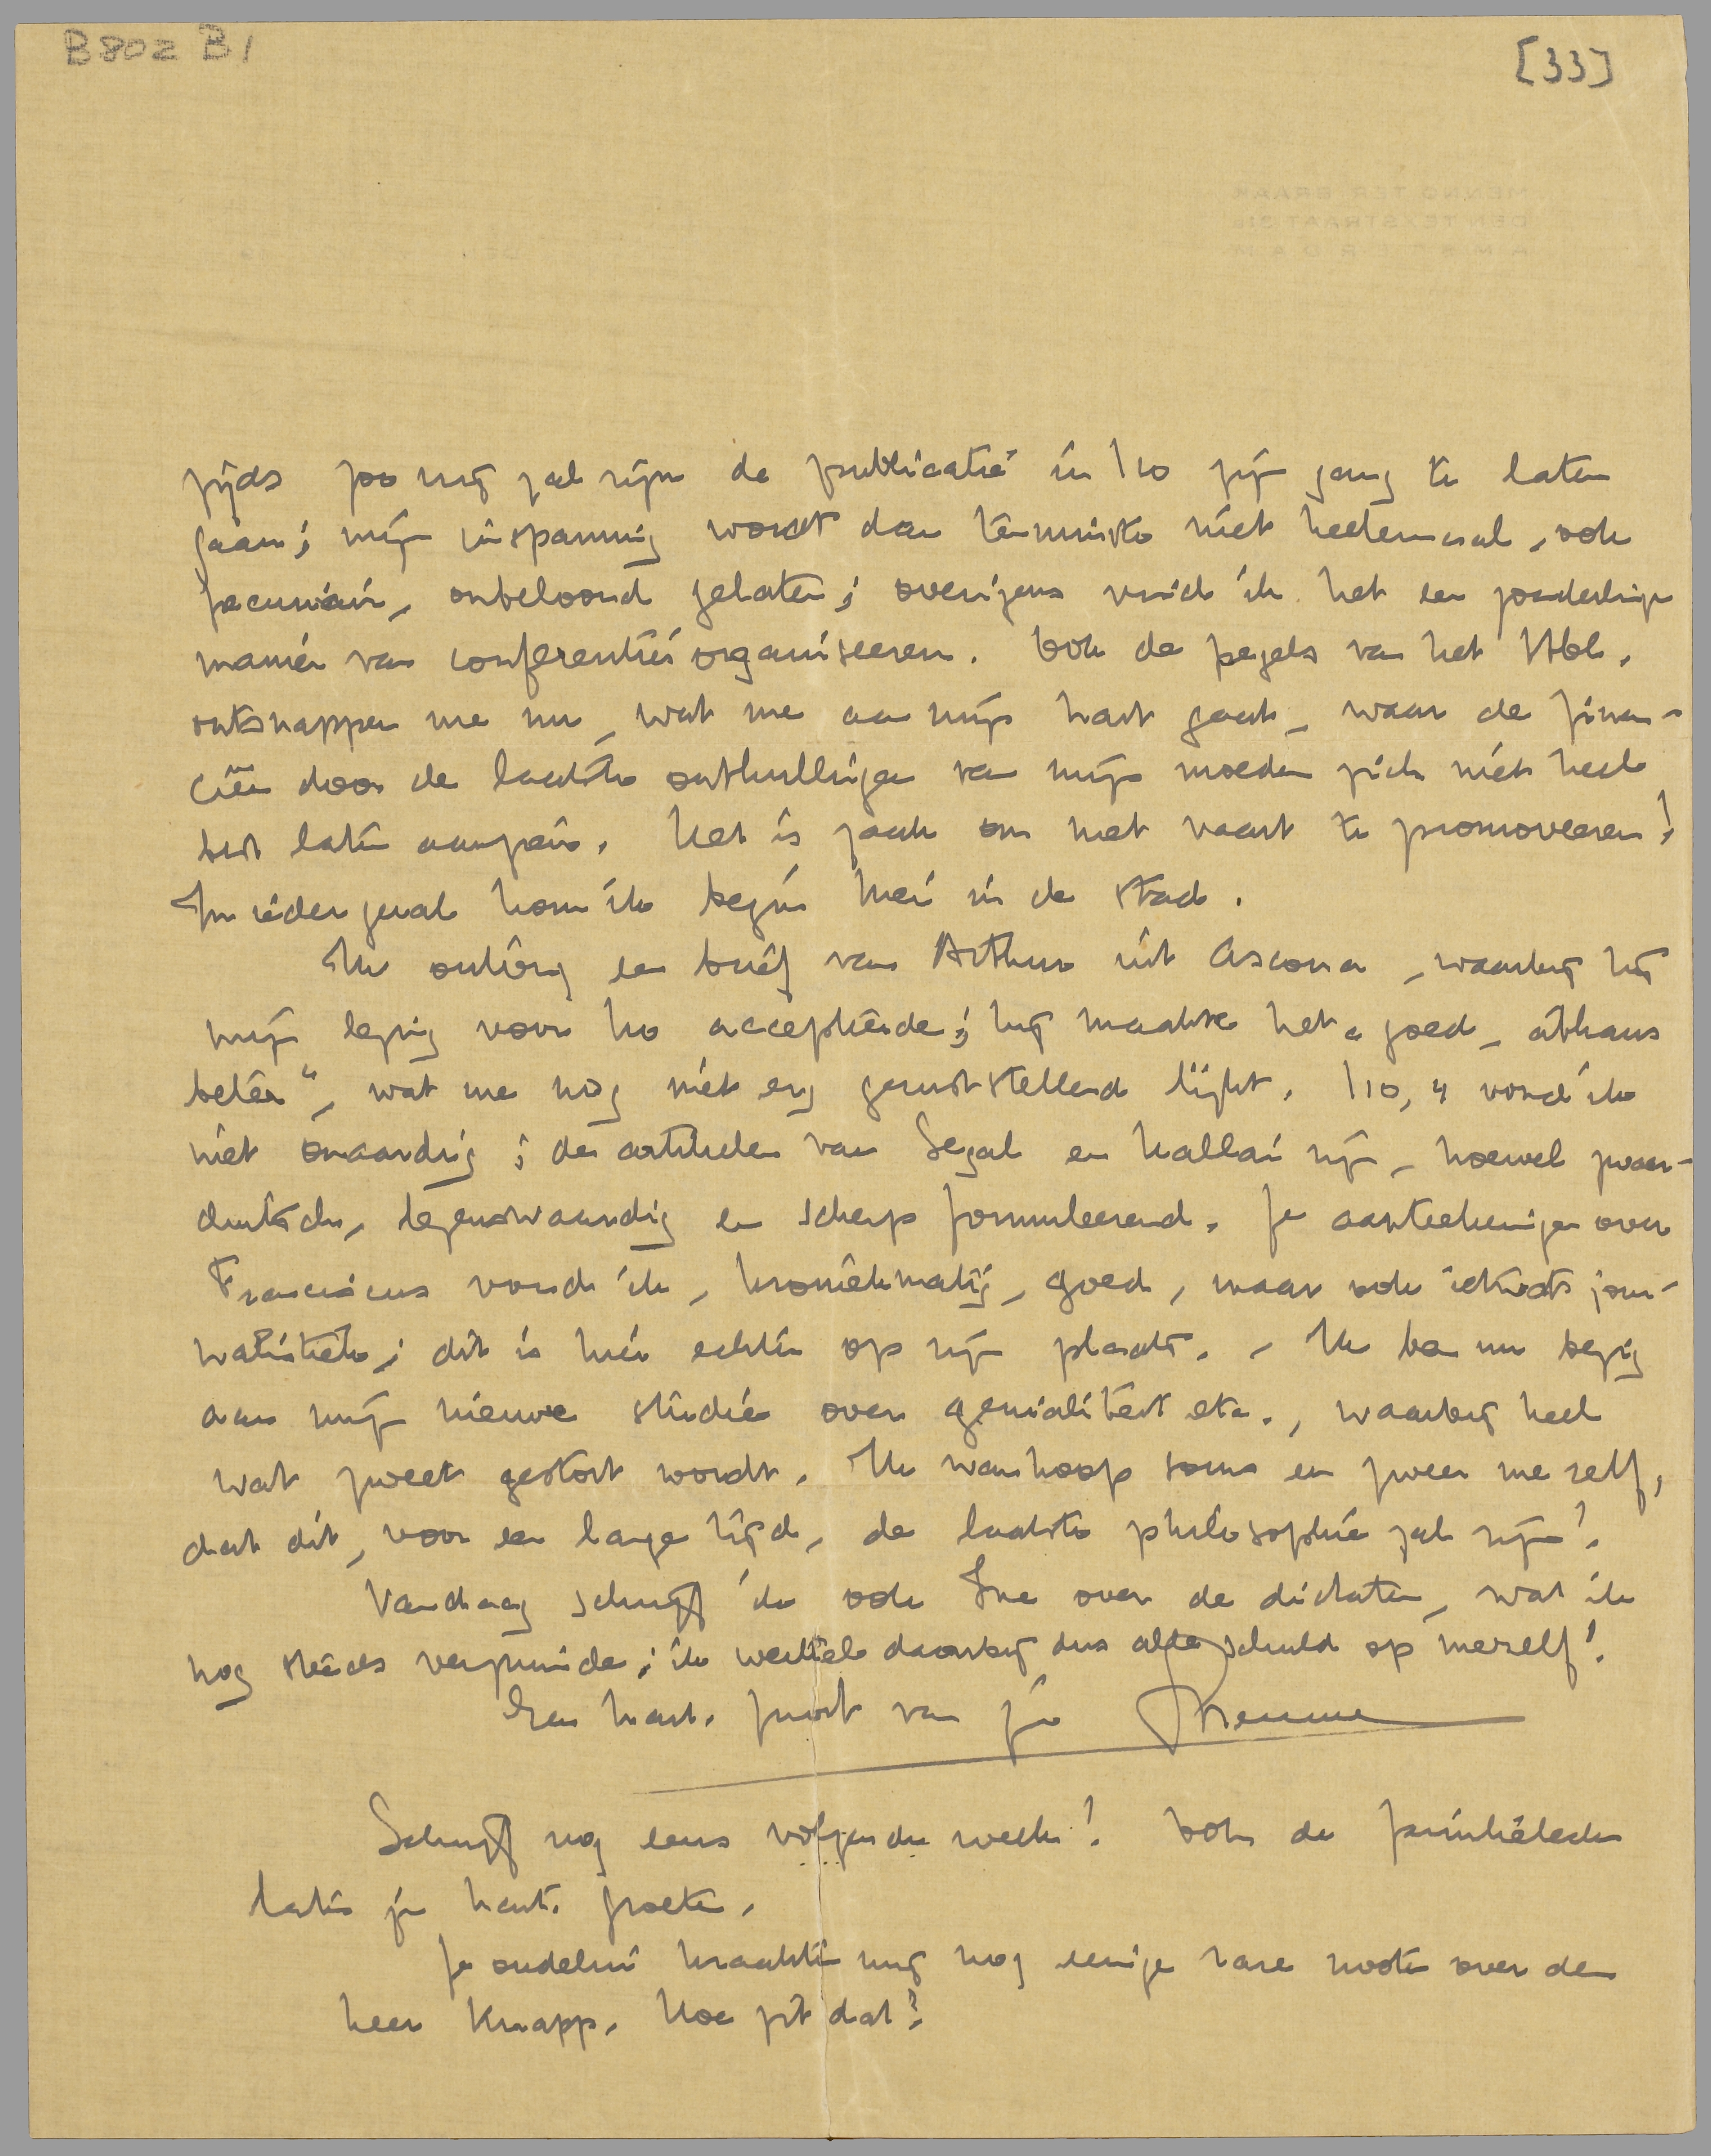 B802 B1
[33]
zijds zoo vrij zal zijn de publicatie in I10 zijn gang te laten
gaan; mijn inspanning wordt dan tenminste niet heelemaal, ook
pecuniair, onbeloond gelaten; overigens vind ik het een zonderlinge
manier van conferenties organiseeren. Ook de pegels van het Hbl.
ontsnappen me nu, wat me aan mijn hart gaat, waar de finan-
ciën door de laatste onthullingen van mijn moeder zich niet heel
best laten aanzien. Het is zaak om met vaart te promoveeren!
In ieder geval kom ik begin Mei in de stad.
Ik ontving een brief van Arthur uit Ascona, waarbij hij
mijn lezing voor I10 accepteerde; hij maakte het „goed, althans
beter", wat me nog niet erg geruststellend lijkt. I10, 4 vond ik
niet onaardig; de artikelen van Segal en Kallai zijn, hoewel zwaar-
duitsch, tegenwaardig en scherp formuleerend. Je aanteekeningen over
Franciscus vond ik, kroniekmatig, goed, maar ook ietwat jour-
nalistiek; dit is hier echter op zijn plaats. - Ik ben nu bezig
aan mijn nieuwe studie over genialiteit etc., waarbij heel
wat zweet gestort wordt. Ik wanhoop soms en zweer me zelf,
dat dit, voor een lange tijd, de laatste philosophie zal zijn!
Vandaag schrijf ik ook Ine over de dictaten, wat ik
nog steeds verzuimde; ik wentel daarbij dus alle schuld op mezelf!
Een hart. groet van je Menno
Schrijf nog eens volgende week! Ook de familieleden
laten je hart. groeten.
Je oudelui kraakten mij nog eenige rare noten over den
heer Knapp. Hoe zit dat?